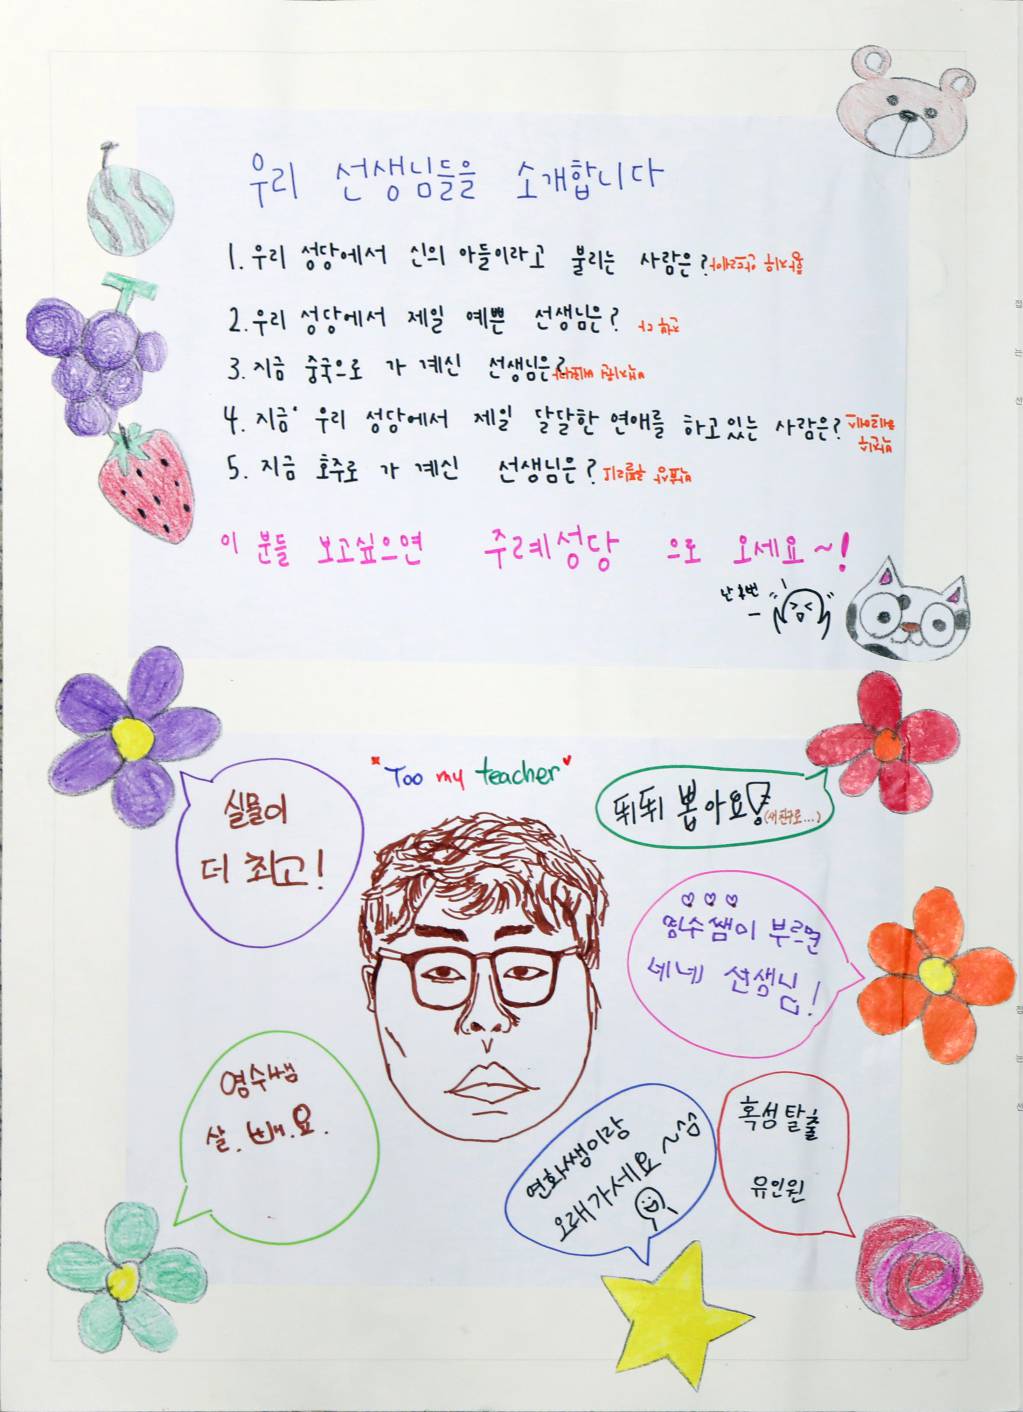 우리 선생님들을 소개합니다
1. 우리 성당에서 신의 아들이라고 불리는 사람은?
2. 우리 성당에서 제일 예쁜 선생님은?
3. 지금 중국으로 가 계신 선생님은?
4. 지금 우리 성당에서 제일 달달한 연애를 하고있는 사람은?
5. 지금 호주로 가 계신 선생님은?
이 분들 보고싶으면 주례성당 으로 오세요~!
"Too my teacher"
실물이
더 최고!
뛰뛰 뽑아요!
영수쌤이 부르면
네네 선생님!
영수쌤
살.빼.요.
연화쌤이랑
오래가세요~
혹성탈출
유인원